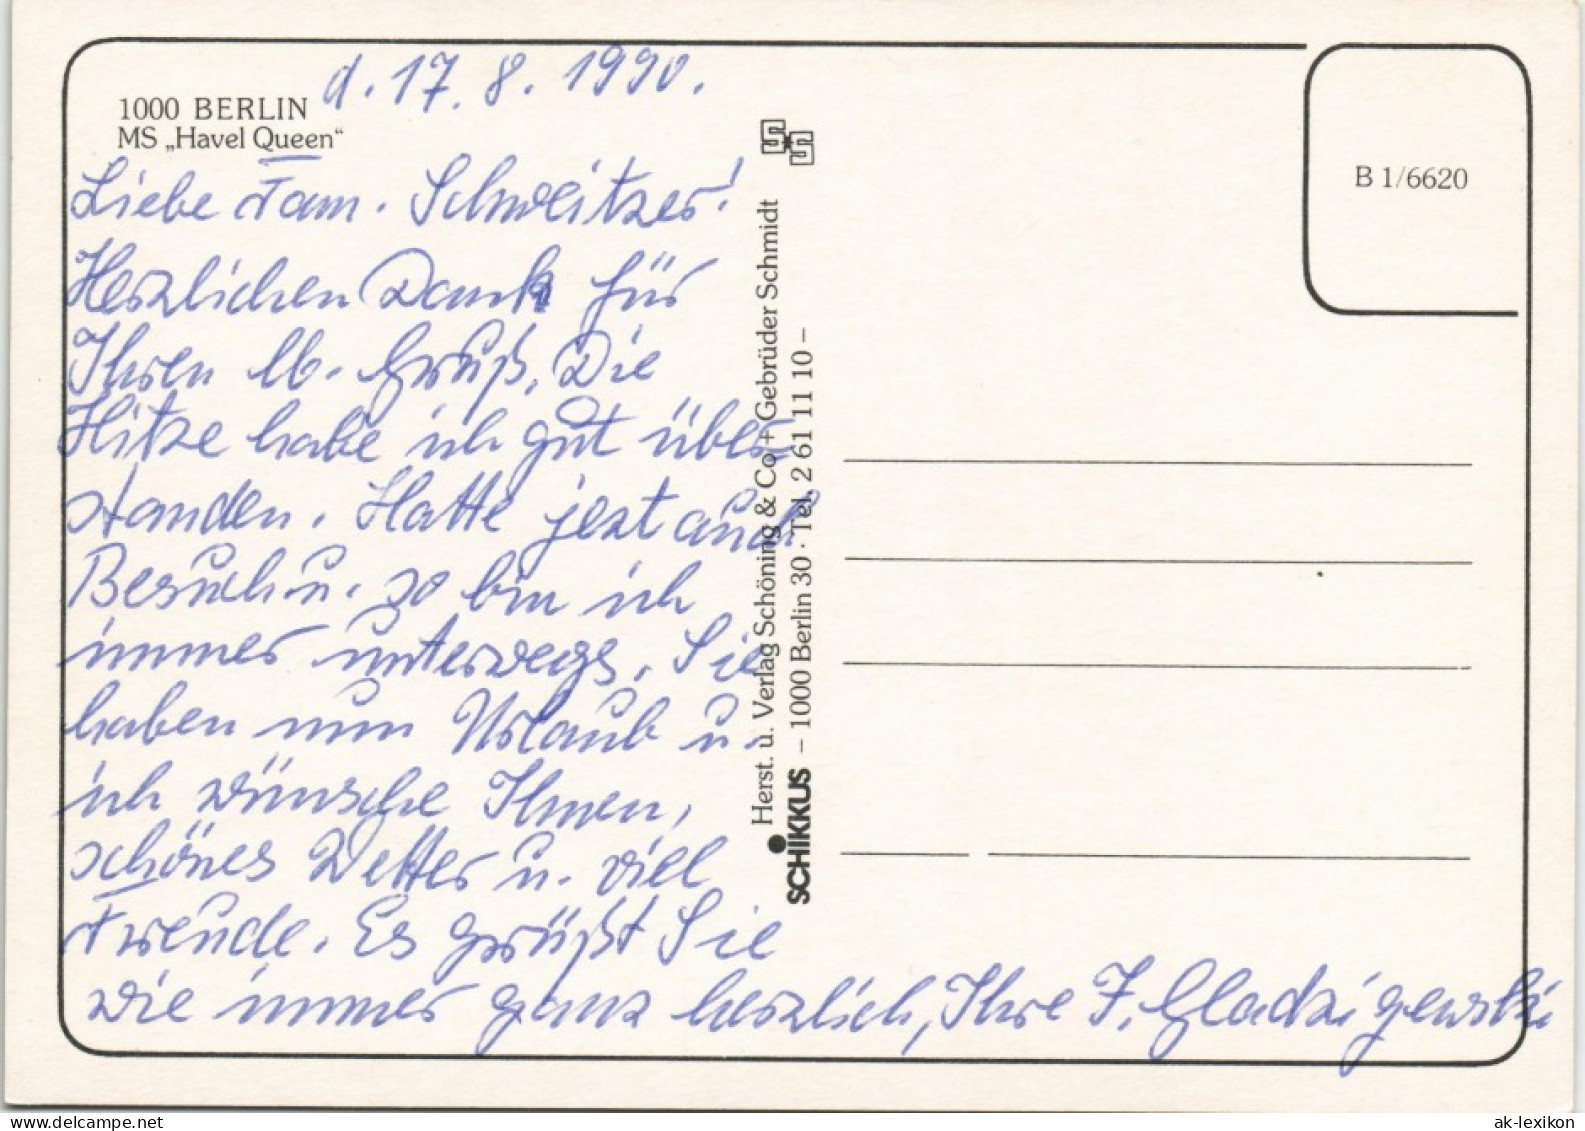 d. 17. 8. 1990.
1000 BERLIN
MS „Havel Queen“
Liebe Fam. Schweitzer!
Herzlichen Dank für
Ihren lb. Gruß. Die
Hitze habe ich gut über-
standen. Hatte jezt auch
Besuch u. so bin ich
immer unterwegs. Sie
haben nun Urlaub u.
ich wünsche Ihnen,
schönes Wetter u. viel
Freude. Es grüßt Sie
wie immer ganz herzlich, Ihre F. Gladzigewski
Herst. u. Verlag Schöning & Co + Gebrüder Schmidt
SCHIKKUS – 1000 Berlin 30 · Tel. 2 61 11 10 –
B 1/6620
delcampe.net
ak-lexikon